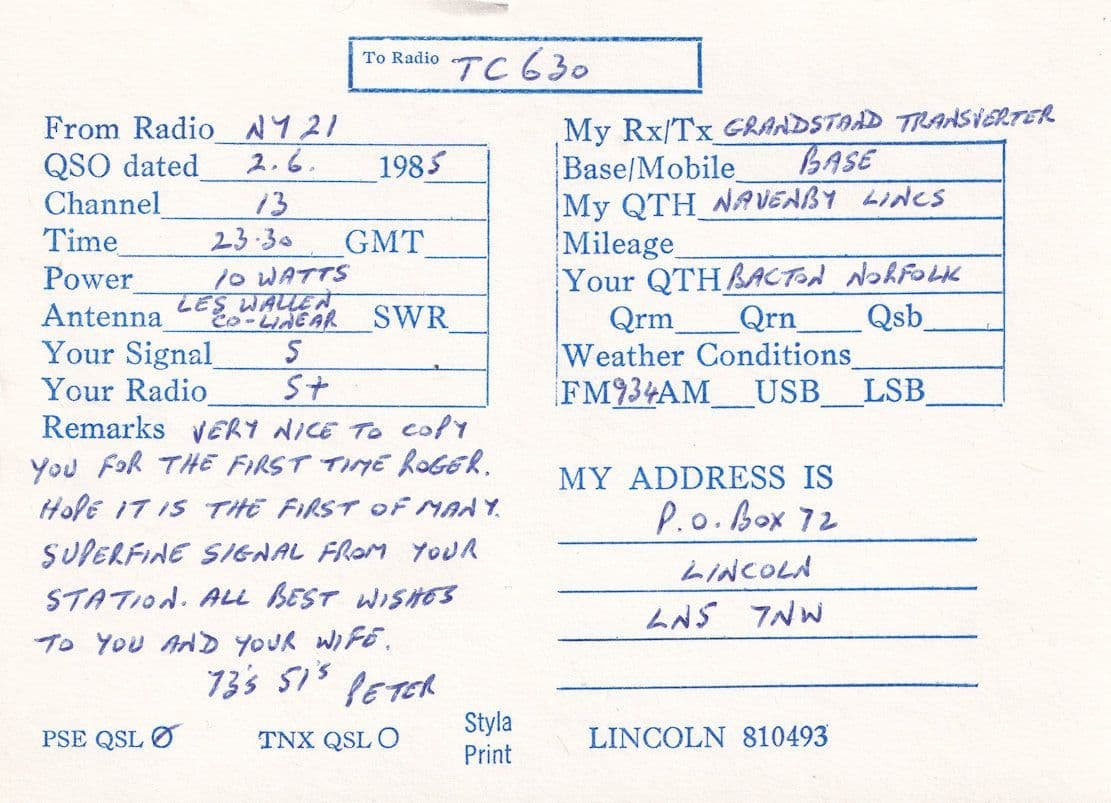 To Radio TC 630
From Radio NY 21
QSO dated 2.6. 1985
Channel 13
Time 23.30 GMT
Power 10 WATTS
Antenna LES WALLEN CO-LINEAR SWR
Your Signal 5
Your Radio S+
Remarks VERY NICE TO COPY
YOU FOR THE FIRST TIME ROGER.
HOPE IT IS THE FIRST OF MANY.
SUPERFINE SIGNAL FROM YOUR
STATION. ALL BEST WISHES
TO YOU AND YOUR WIFE.
73's 51's PETER
PSE QSL O TNX QSL O
Styla
Print
My Rx/Tx GRANDSTAND TRANSVERTER
Base/Mobile BASE
My QTH NAVENBY LINCS
Mileage
Your QTH BACTON NORFOLK
Qrm Qrn Qsb
Weather Conditions
FM 934 AM USB LSB
MY ADDRESS IS
P.O. Box 72
LINCOLN
LN5 7NW
LINCOLN 810493